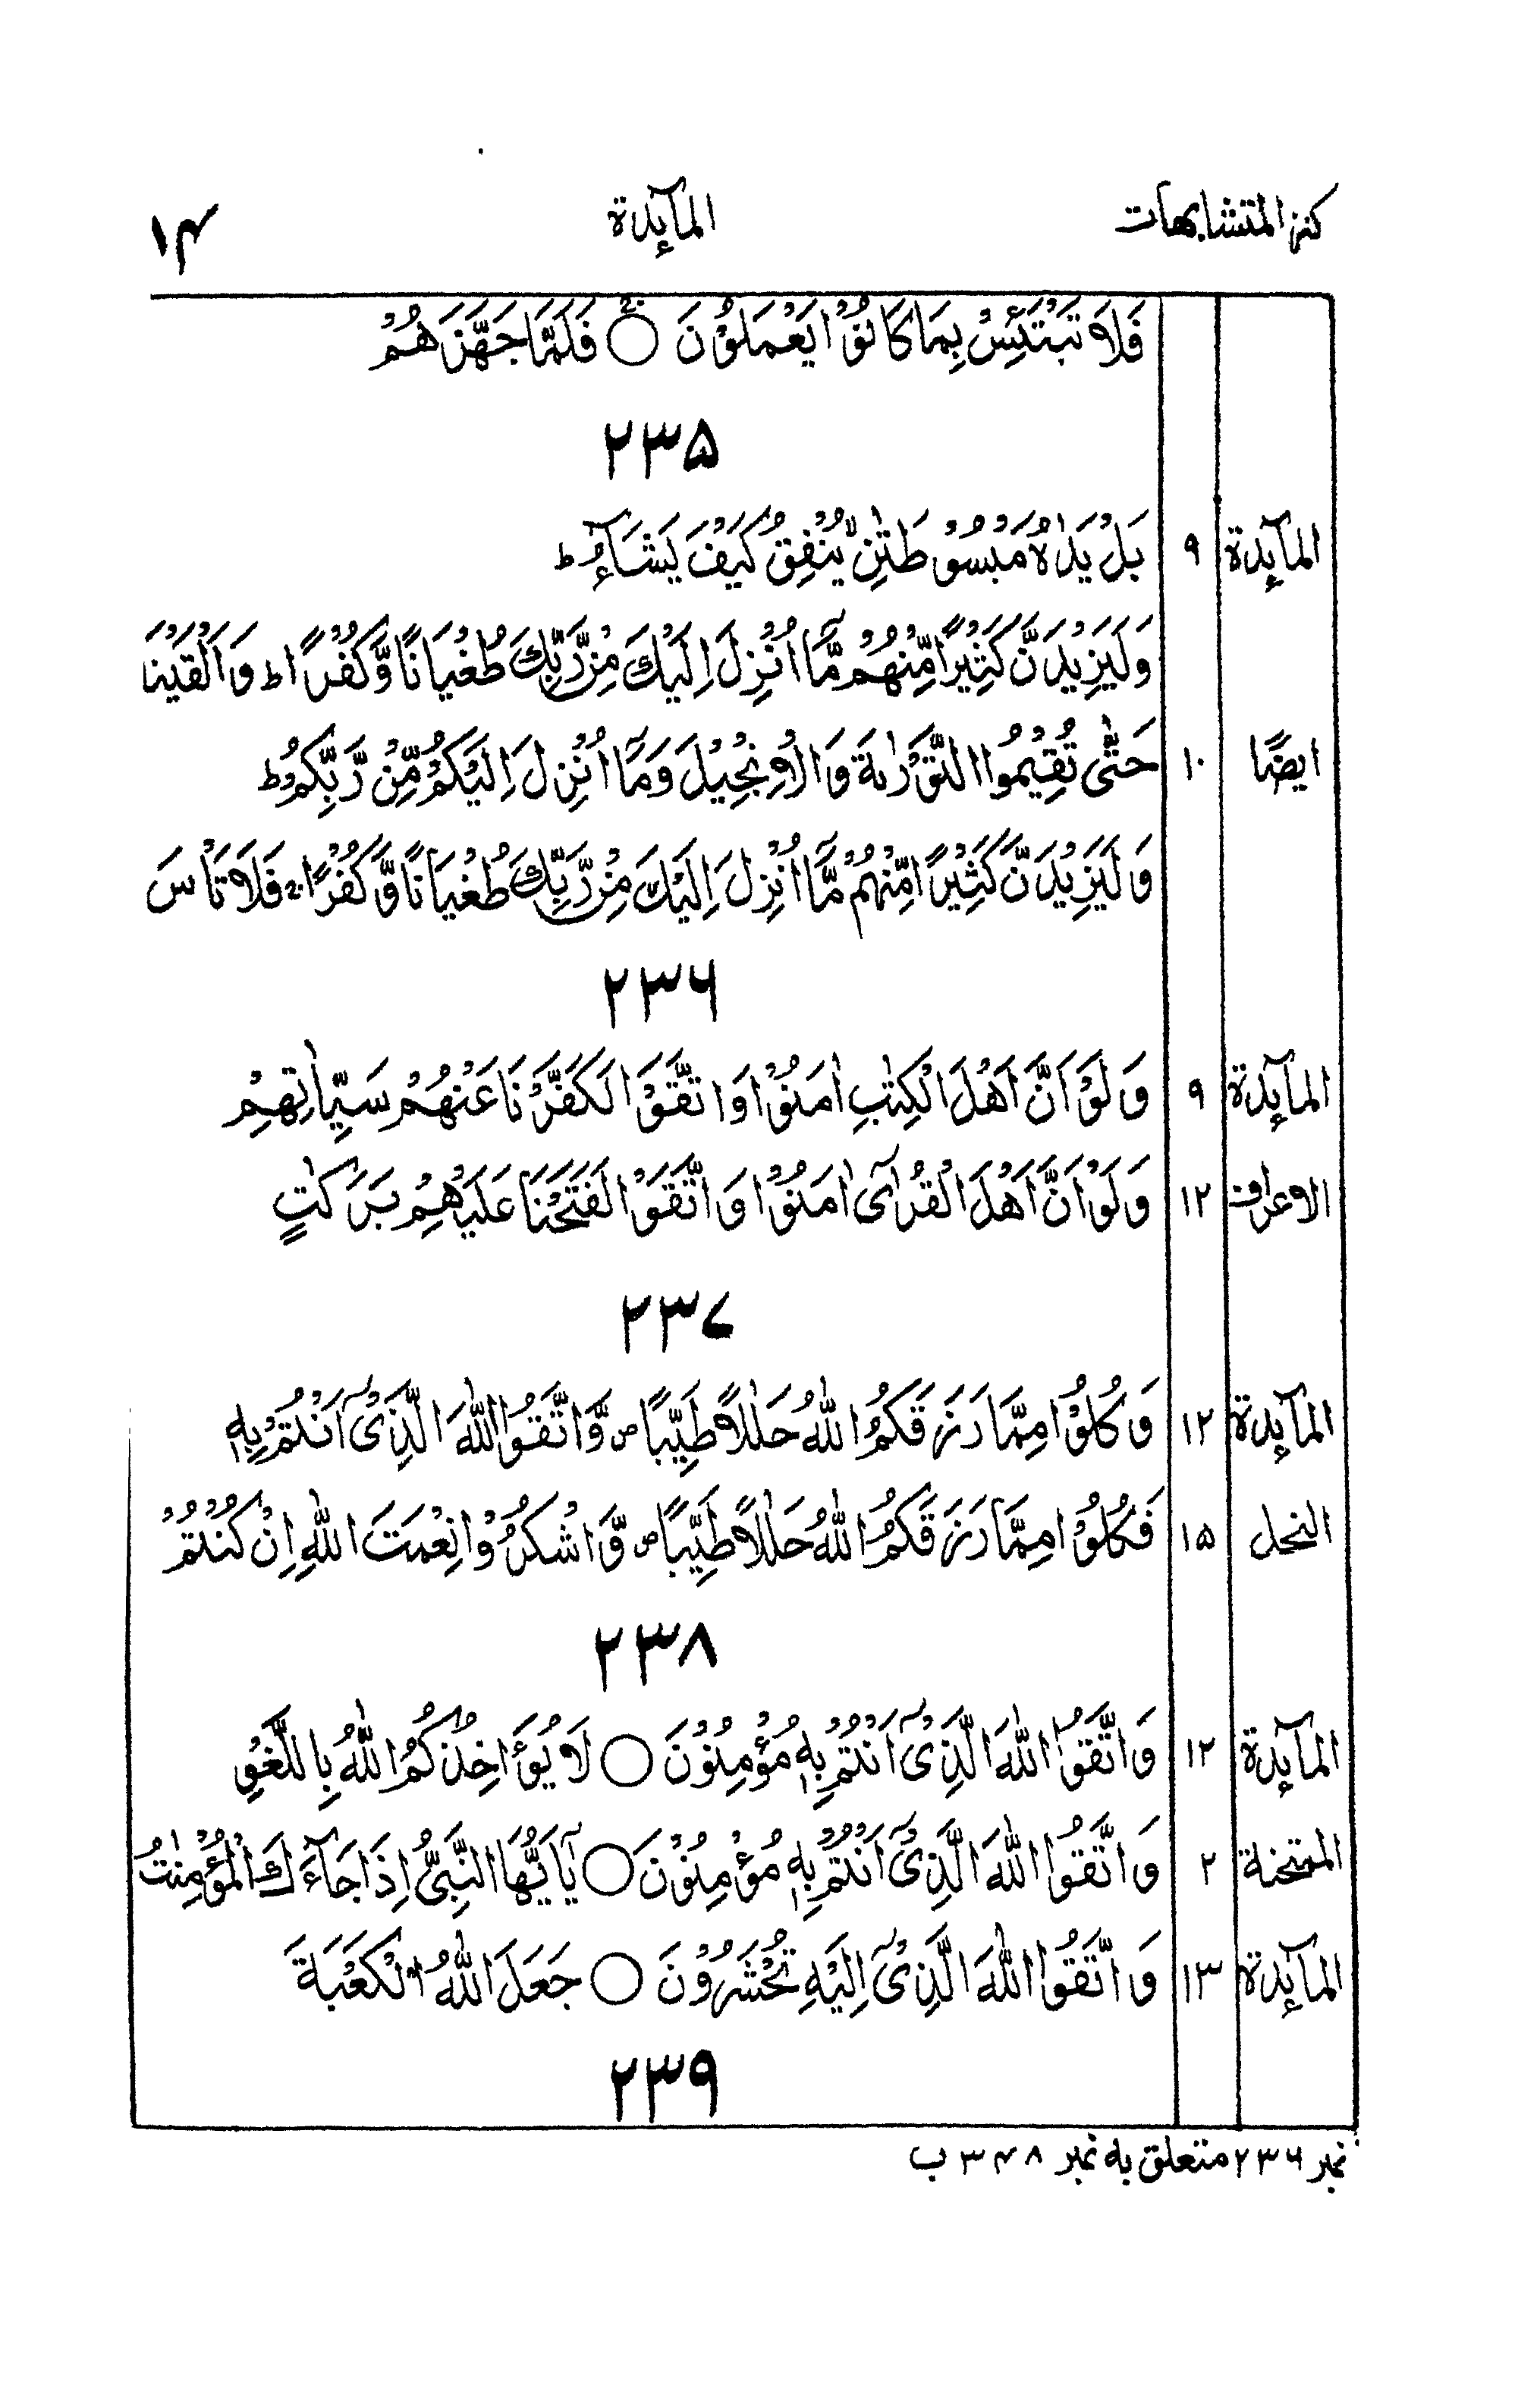 كنز المتشابهات المآئدة ١٤
فَلَا تَبْتَئِسْ بِمَا كَانُوْا يَعْمَلُوْنَ ○ فَلَمَّا جَهَّزَهُمْ
٢٣۵
المآئدة ٩ بَلْ يَدٰهُ مَبْسُوْطَتٰنِ ۙ يُنْفِقُ كَيْفَ يَشَآءُ ؕ
وَلَيَزِيْدَنَّ كَثِيْرًا مِّنْهُمْ مَّاۤ اُنْزِلَ اِلَيْكَ مِنْ رَّبِّكَ طُغْيَانًا وَّكُفْرًا ؕ وَاَلْقَيْنَا
ايضًا ١٠ حَتّٰى تُقِيْمُوا التَّوْرٰىةَ وَالْاِنْجِيْلَ وَمَاۤ اُنْزِلَ اِلَيْكُمْ مِّنْ رَّبِّكُمْ ؕ
وَلَيَزِيْدَنَّ كَثِيْرًا مِّنْهُمْ مَّاۤ اُنْزِلَ اِلَيْكَ مِنْ رَّبِّكَ طُغْيَانًا وَّكُفْرًا ۚ فَلَا تَاْسَ
٢٣٦
المآئدة ٩ وَلَوْ اَنَّ اَهْلَ الْكِتٰبِ اٰمَنُوْا وَاتَّقَوْا لَكَفَّرْنَا عَنْهُمْ سَيِّاٰتِهِمْ
الاعراف ١٢ وَلَوْ اَنَّ اَهْلَ الْقُرٰۤى اٰمَنُوْا وَاتَّقَوْا لَفَتَحْنَا عَلَيْهِمْ بَرَكٰتٍ
٢٣٧
المآئدة ١٢ وَكُلُوْا مِمَّا رَزَقَكُمُ اللّٰهُ حَلٰلًا طَيِّبًا ۪ وَّاتَّقُوا اللّٰهَ الَّذِيْۤ اَنْتُمْ بِهٖ
النحل ١۵ فَكُلُوْا مِمَّا رَزَقَكُمُ اللّٰهُ حَلٰلًا طَيِّبًا ۪ وَّاشْكُرُوْا نِعْمَتَ اللّٰهِ اِنْ كُنْتُمْ
٢٣٨
المآئدة ١٢ وَاتَّقُوا اللّٰهَ الَّذِيْۤ اَنْتُمْ بِهٖ مُؤْمِنُوْنَ ○ لَا يُؤَاخِذُكُمُ اللّٰهُ بِاللَّغْوِ
الممتحنة ٢ وَاتَّقُوا اللّٰهَ الَّذِيْۤ اَنْتُمْ بِهٖ مُؤْمِنُوْنَ ○ يٰۤاَيُّهَا النَّبِيُّ اِذَا جَآءَكَ الْمُؤْمِنٰتُ
المآئدة ١٣ وَاتَّقُوا اللّٰهَ الَّذِيْۤ اِلَيْهِ تُحْشَرُوْنَ ○ جَعَلَ اللّٰهُ الْكَعْبَةَ
٢٣٩
نمبر ٢٣٦ متعلق به نمبر ٣٤٨ ب